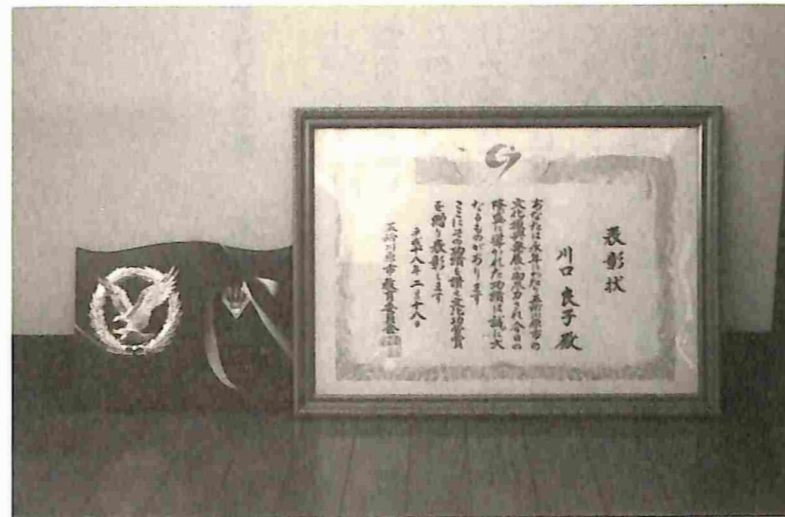 表彰状
川口 良子 殿
あなたは永年にわたり五所川原市の
文化振興発展に御尽力され今日の
隆盛に導かれた功績は誠に大
なるものがあります
ここにその功績を讃え文化功労賞
を贈り表彰します
平成十八年二月十八日
五所川原市教育委員会